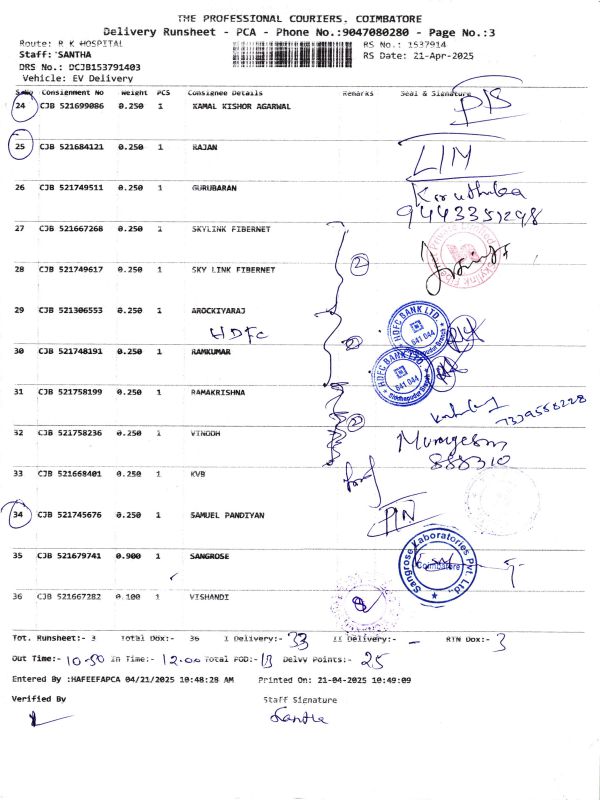 THE PROFESSIONAL COURIERS, COIMBATORE
Delivery Runsheet - PCA - Phone No.:9047080280 - Page No.:3
Route: R K HOSPITAL RS No.: 1537914
Staff: SANTHA RS Date: 21-Apr-2025
DRS No.: DCJB153791403
Vehicle: EV Delivery
S.No Consignment No Weight PCS Consignee Details Remarks Seal & Signature
24 CJB 521699086 0.250 1 KAMAL KISHOR AGARWAL
25 CJB 521684121 0.250 1 RAJAN
26 CJB 521749511 0.250 1 GURUBARAN
27 CJB 521667268 0.250 1 SKYLINK FIBERNET
28 CJB 521749617 0.250 1 SKY LINK FIBERNET 2
29 CJB 521306553 0.250 1 AROCKIYARAJ HDFC BANK LTD.
HDFC 641 044
30 CJB 521748191 0.250 1 RAMKUMAR 2 HDFC BANK LTD. 641 044
31 CJB 521758199 0.250 1 RAMAKRISHNA
32 CJB 521758236 0.250 1 VINODH 2 Murugesan
888310
33 CJB 521668401 0.250 1 KVB
34 CJB 521745676 0.250 1 SAMUEL PANDIYAN
35 CJB 521679741 0.900 1 SANGROSE Sangrose Laboratories Pvt. Ltd., Coimbatore
36 CJB 521667282 0.100 1 VISHANDI
Tot. Runsheet:- 3 Total Dox:- 36 I Delivery:- 33 II Delivery:- - RTN Dox:- 3
Out Time:- 10-50 In Time:- 12.00 Total POD:- 13 Delvy Points:- 25
Entered By :HAFEEFAPCA 04/21/2025 10:48:28 AM Printed On: 21-04-2025 10:49:09
Verified By Staff Signature
Santha